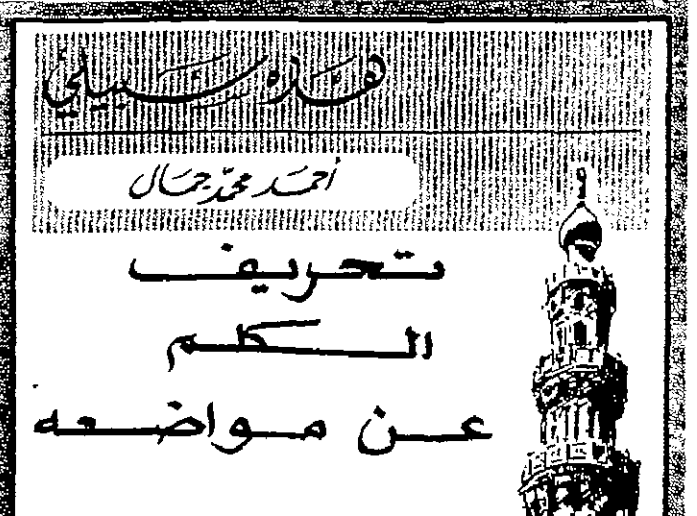 هذه سبيلي
أحمد محمد جمال
تحريف
الكلم
عن مواضعه